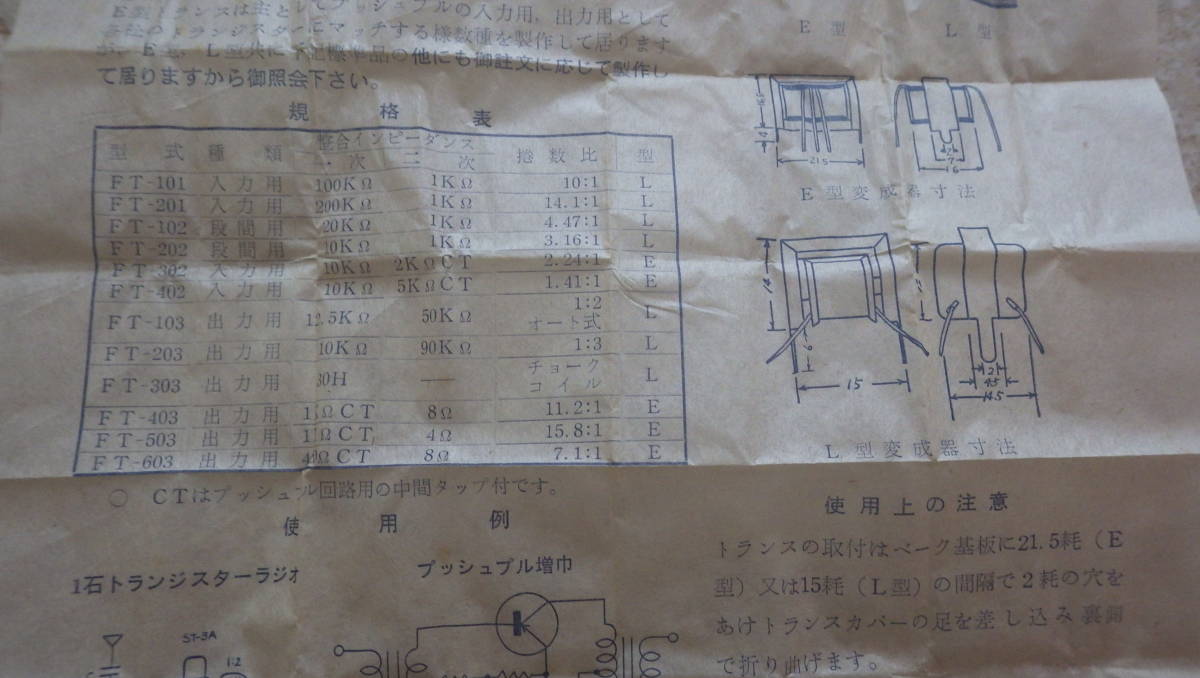 E型トランスは主としてプッシュプルの入力用,出力用として
トランジスターにマッチする様数種を製作して居ります
L型共に下記標準品の他にも御註文に応じて製作し
て居りますから御照会下さい。
規格表
型式 種類 整合インピーダンス 捲数比 型
一次 二次
FT-101 入力用 100KΩ 1KΩ 10:1 L
FT-201 入力用 200KΩ 1KΩ 14.1:1 L
FT-102 段間用 20KΩ 1KΩ 4.47:1 L
FT-202 段間用 10KΩ 1KΩ 3.16:1 L
FT-302 入力用 10KΩ 2KΩCT 2.24:1 E
FT-402 入力用 10KΩ 5KΩCT 1.41:1 E
FT-103 出力用 12.5KΩ 50KΩ 1:2 オート式 L
FT-203 出力用 10KΩ 90KΩ 1:3 L
FT-303 出力用 30H — チョークコイル L
FT-403 出力用 ΩCT 8Ω 11.2:1 E
FT-503 出力用 ΩCT 4Ω 15.8:1 E
FT-603 出力用 ΩCT 8Ω 7.1:1 E
○ CTはプッシュル回路用の中間タップ付です。
使用例
1石トランジスターラジオ
ST-3A
1:2
プッシュプル増巾
E型 L型
21.5
7
16
E型変成器寸法
14
6
15
2
4.5
14.5
L型変成器寸法
使用上の注意
トランスの取付はベーク基板に21.5粍(E
型)又は15粍(L型)の間隔で2粍の穴を
あけトランスカバーの足を差し込み裏側
で折り曲げます。